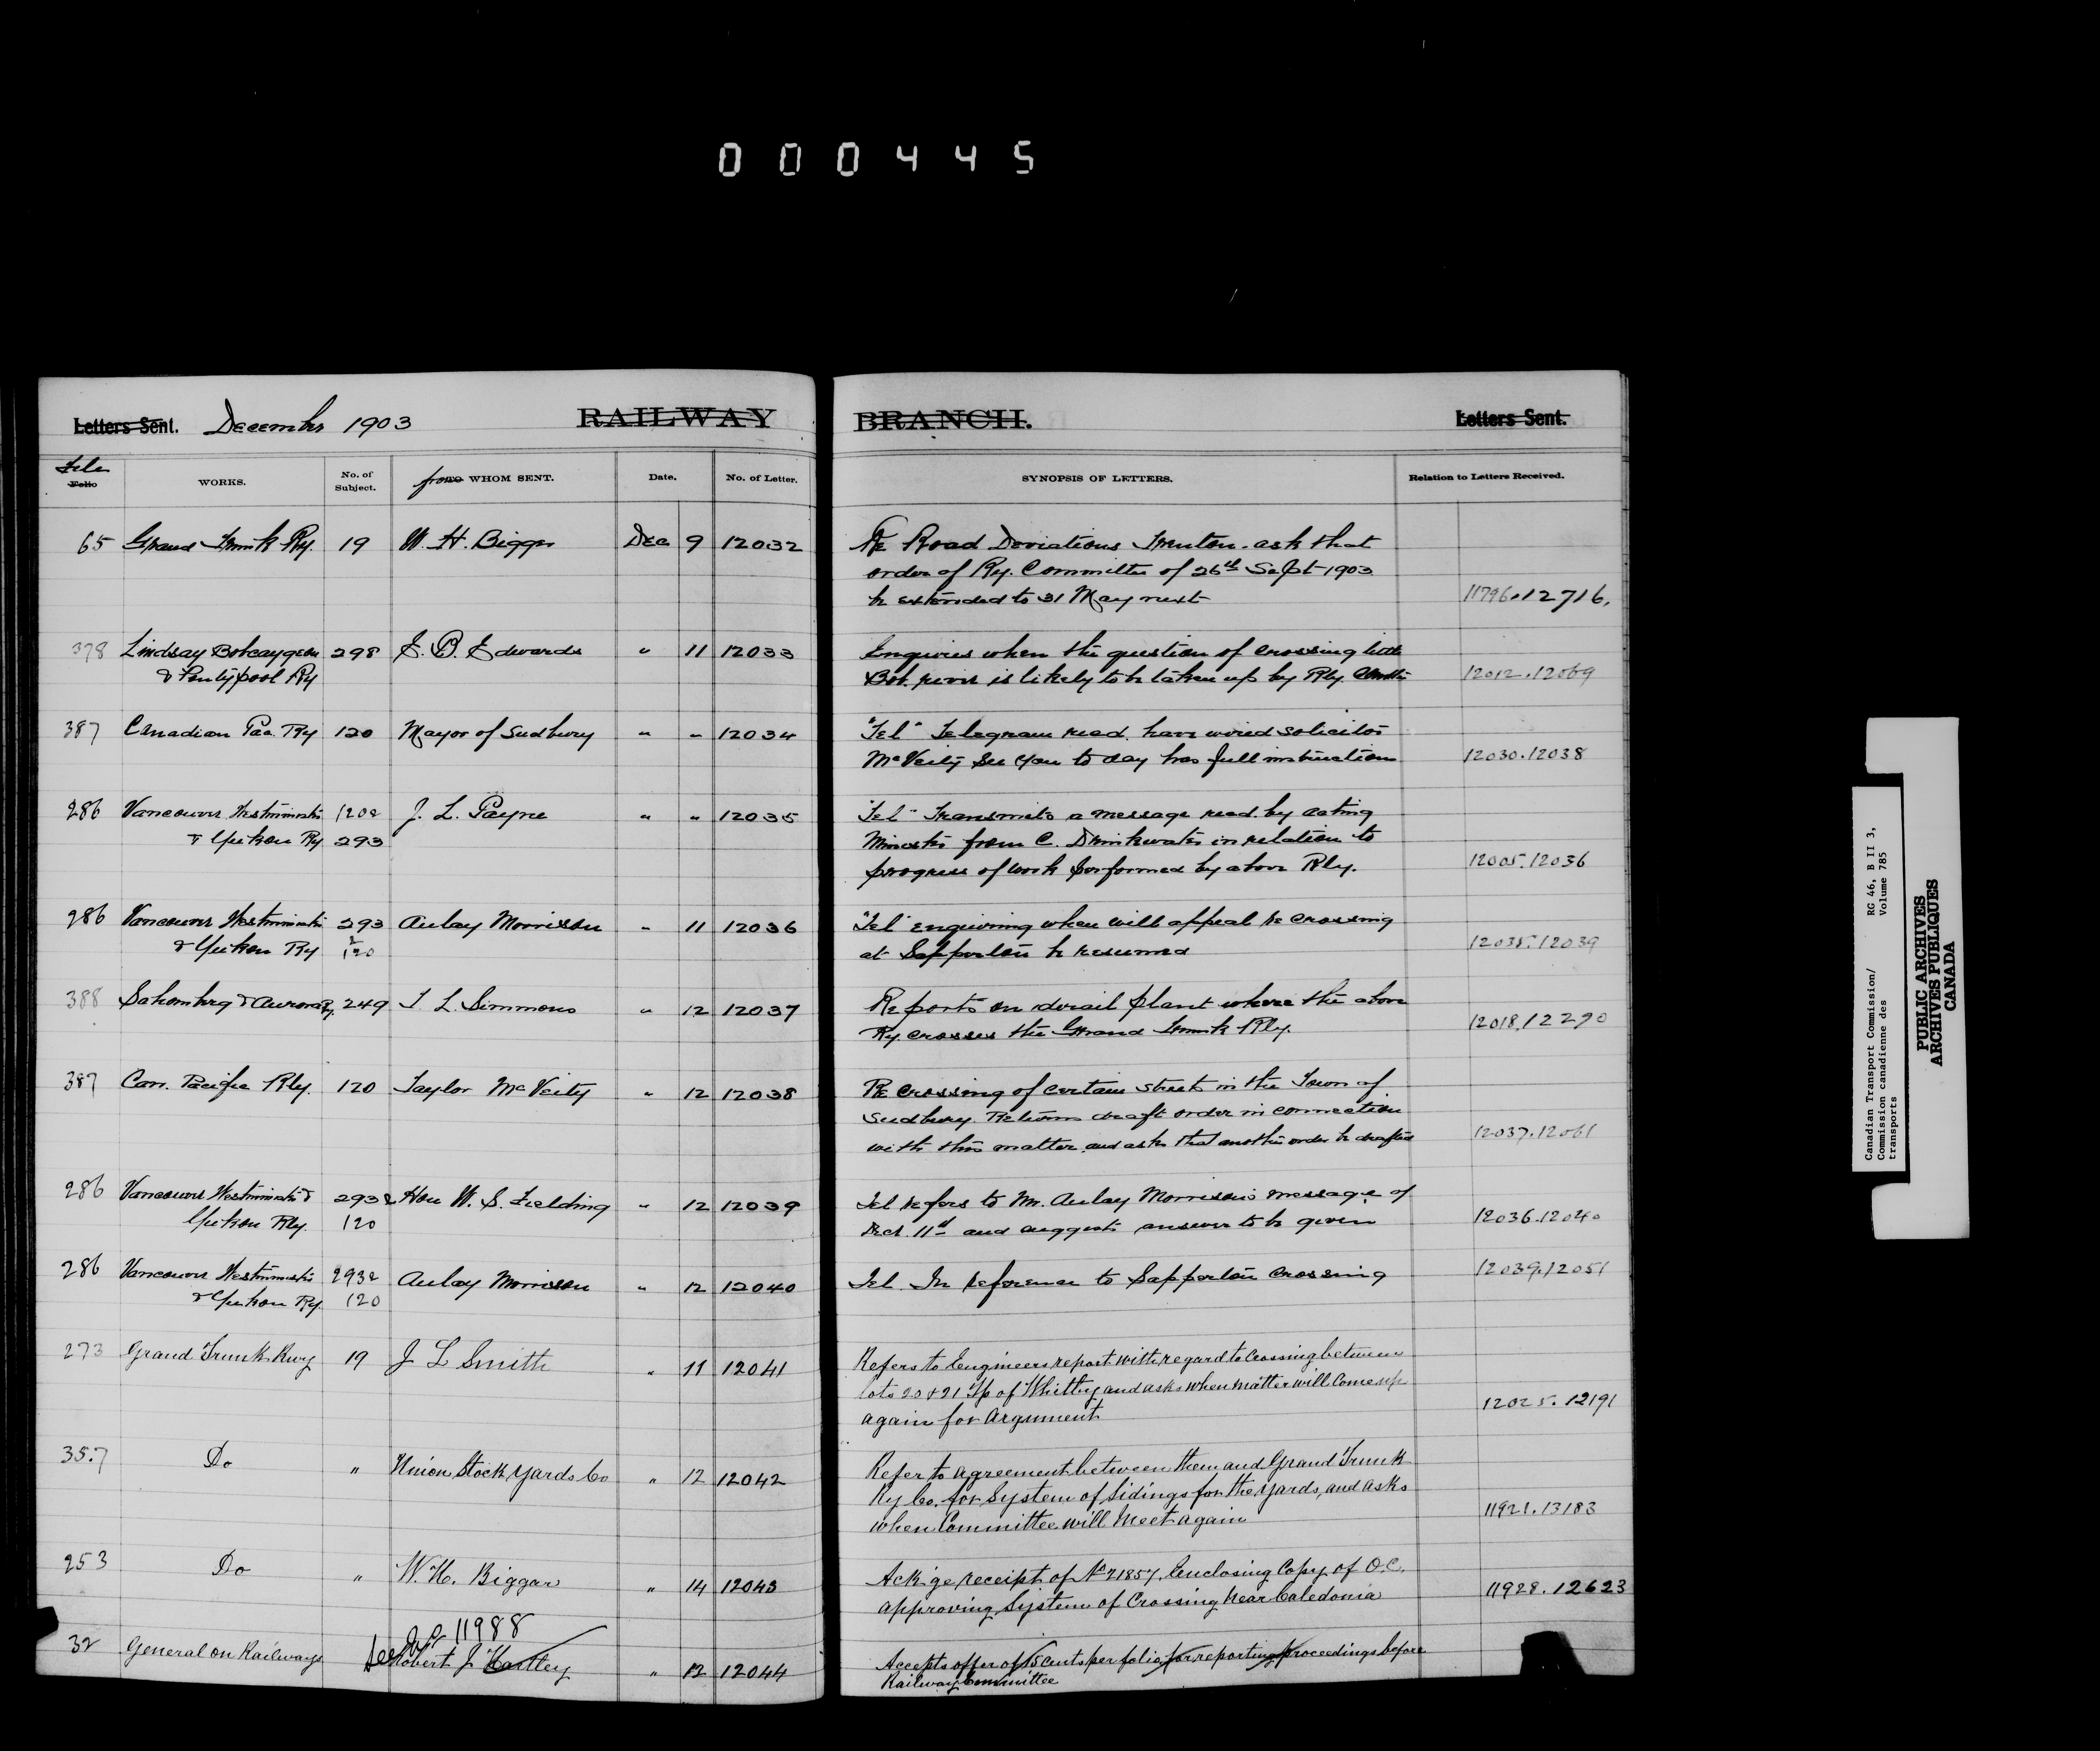 000445
Letters Sent. December 1903 RAILWAY BRANCH. Letters Sent.
File Folio WORKS. No. of Subject. from WHOM SENT. Date. No. of Letter. SYNOPSIS OF LETTERS. Relation to Letters Received.
65 Grand Trunk Ry. 19 W. H. Biggar Dec 9 12032 Re Road Deviations Trenton. ask that
order of Ry. Committee of 26th Sept 1903
be extended to 31 May next 11796.12716.
378 Lindsay Bobcaygeon 298 Edwards " 11 12033 Enquires when the question of crossing little
& Pontypool Ry Bob. river is likely to be taken up by Rly. 12012.12069
387 Canadian Pac. Ry 120 Mayor of Sudbury " " 12034 "Tel" Telegram recd. have wired solicitor
McVeity see you to day has full instructions 12030.12038
286 Vancouver Westminster 120 & J. L. Payne " " 12035 "Tel" Transmits a message recd. by acting
& Yukon Ry 293 Minister from C. Drinkwater in relation to
progress of work performed by above Rly. 12005.12036
286 Vancouver Westminster 293 Aulay Morrison " 11 12036 "Tel" enquiring when will appeal re crossing
& Yukon Ry & 120 at Sapperton be resumed 12035.12039
388 Schomberg & Aurora Ry. 249 T. L. Simmons " 12 12037 Reports on derail plant where the above
Ry. crosses the Grand Trunk Rly. 12018.12290
387 Can. Pacific Rly. 120 Taylor McVeity " 12 12038 Re crossing of certain streets in the Town of
Sudbury. Returns draft order in connection
with this matter and asks that another order be drafted 12037.12061
286 Vancouver Westminster & 293 & Hon W. S. Fielding " 12 12039 Tel refers to Mr. Aulay Morrison's message of
Yukon Rly. 120 Decr. 11th and suggests answer to be given 12036.12040
286 Vancouver Westminster 293 & Aulay Morrison " 12 12040 Tel. In reference to Sapperton crossing 12039.12051
& Yukon Ry. 120
273 Grand Trunk Rwy 19 J L Smith " 11 12041 Refers to Engineers report with regard to Crossing between
lots 20 & 21 Tp of Whitby and asks when matter will come up
again for Argument 12025.12191
357 Do " Union Stock Yards Co " 12 12042 Refer to agreement between them and Grand Trunk
Ry Co. for System of Sidings for the yards, and asks
when Committee will meet again 11921.13183
253 Do " W. H. Biggar " 14 12043 Ackge receipt of No 21857. Enclosing Copy of O.C.
approving System of Crossing near Caledonia 11928.12623
See 11988
32 General on Railways Robert J Hartley " 12 12044 Accepts offer of 15 cents per folio for reporting proceedings before
Railway Committee
Canadian Transport Commission/ RG 46, B II 3,
Commission canadienne des Volume 785
transports
PUBLIC ARCHIVES
ARCHIVES PUBLIQUES
CANADA